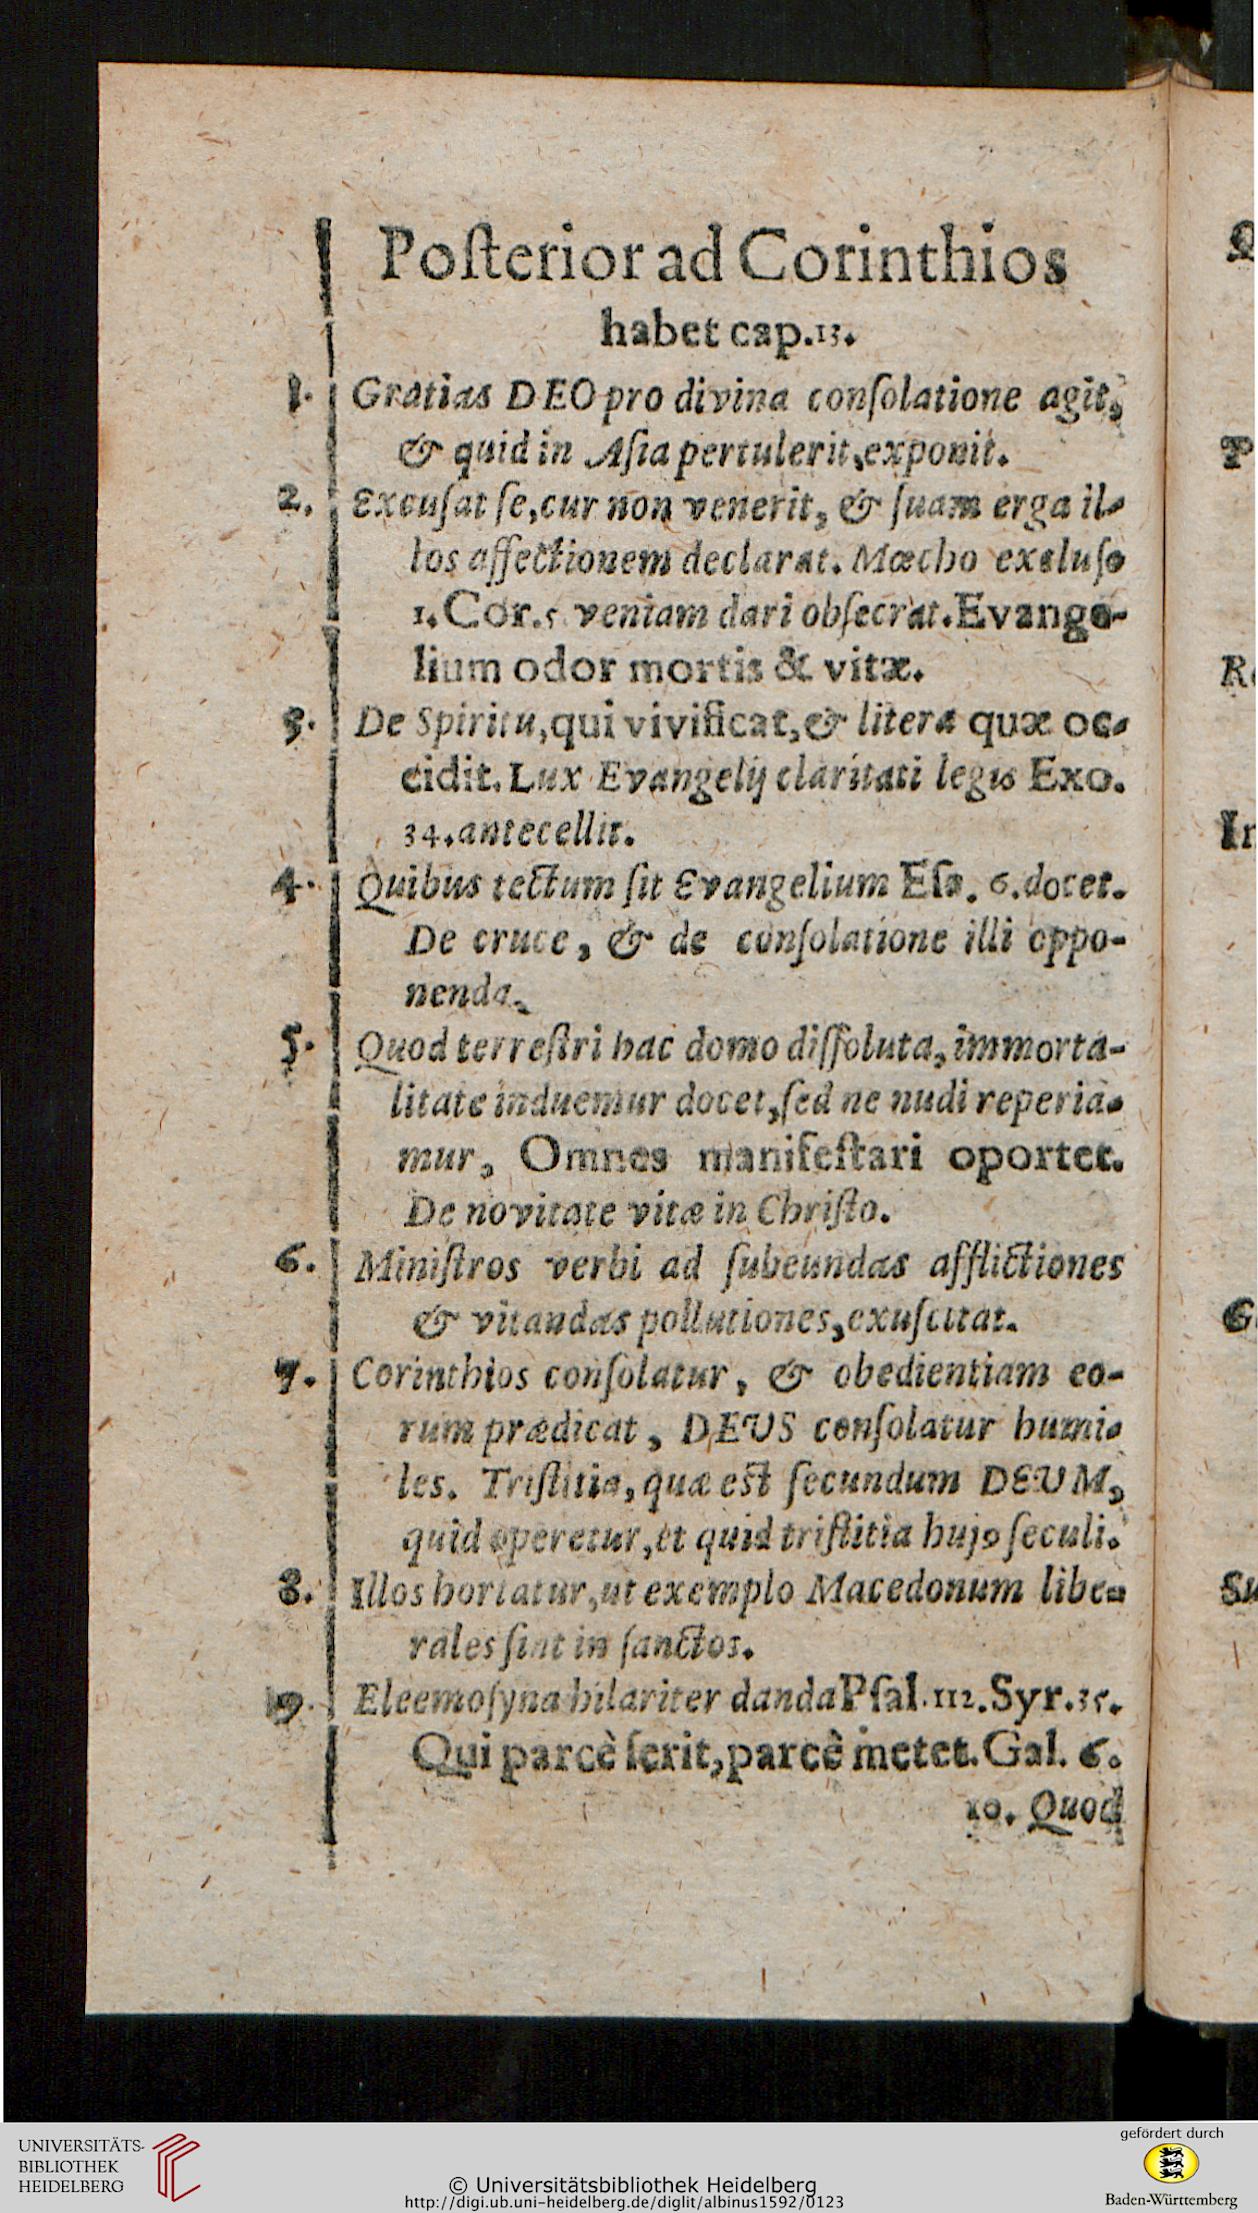 Poſterior ad Corinthios
habet cap.13.
1. Gratias DEO pro divina conſolatione agit,
& quid in Aſia pertulerit, exponit.
2. Excuſat ſe, cur non venerit, & ſuam erga il-
los affectionem declarat. Mœcho excluſo
1. Cor. 5 veniam dari obſecrat. Evange-
lium odor mortis & vitæ.
3. De Spiritu, qui vivificat, & litera quæ oc-
cidit. Lux Evangelij claritati legis Exo.
34. antecellit.
4. Quibus tectum ſit Evangelium Eſa. 6. docet.
De cruce, & de conſolatione illi oppo-
nenda.
5. Quod terreſtri hac domo diſſoluta, immorta-
litate induemur docet, ſed ne nudi reperia-
mur, Omnes manifeſtari oportet.
De novitate vitæ in Chriſto.
6. Miniſtros verbi ad ſubeundas afflictiones
& vitandas pollutiones, exuſcitat.
7. Corinthios conſolatur, & obedientiam eo-
rum prædicat, DEUS conſolatur humi-
les. Triſtitia, quæ est ſecundum DEUM,
quid operetur, et quid triſtitia hujꝰ ſeculi.
8. Illos hortatur, ut exemplo Macedonum libe-
rales ſint in ſanctos.
9. Eleemoſyna hilariter danda Pſal. 112. Syr. 35.
Qui parcè ſerit, parcè metet. Gal. 6.
10. Quod
UNIVERSITÄTS-
BIBLIOTHEK
HEIDELBERG
© Universitätsbibliothek Heidelberg
http://digi.ub.uni-heidelberg.de/diglit/albinus1592/0123
gefördert durch
Baden-Württemberg